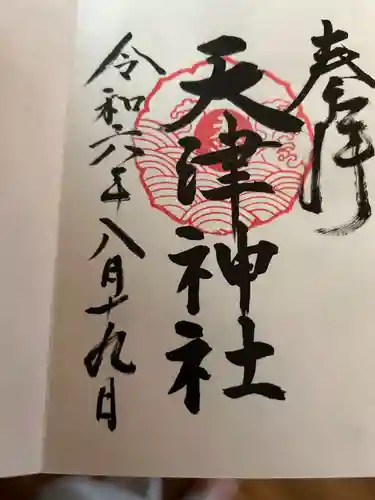 奉拝
天津神社
令和六年八月十九日